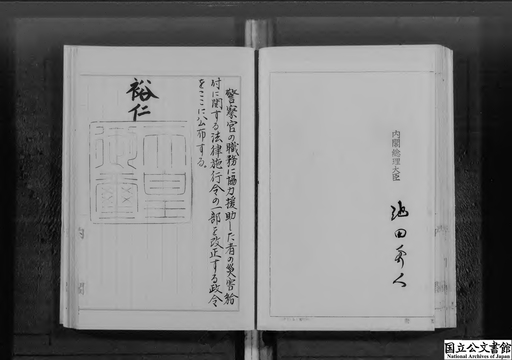 警察官の職務に協力援助した者の災害給
付に関する法律施行令の一部を改正する政令
をここに公布する。
裕仁
天皇
御璽
内閣総理大臣
池田勇人
国立公文書館
National Archives of Japan